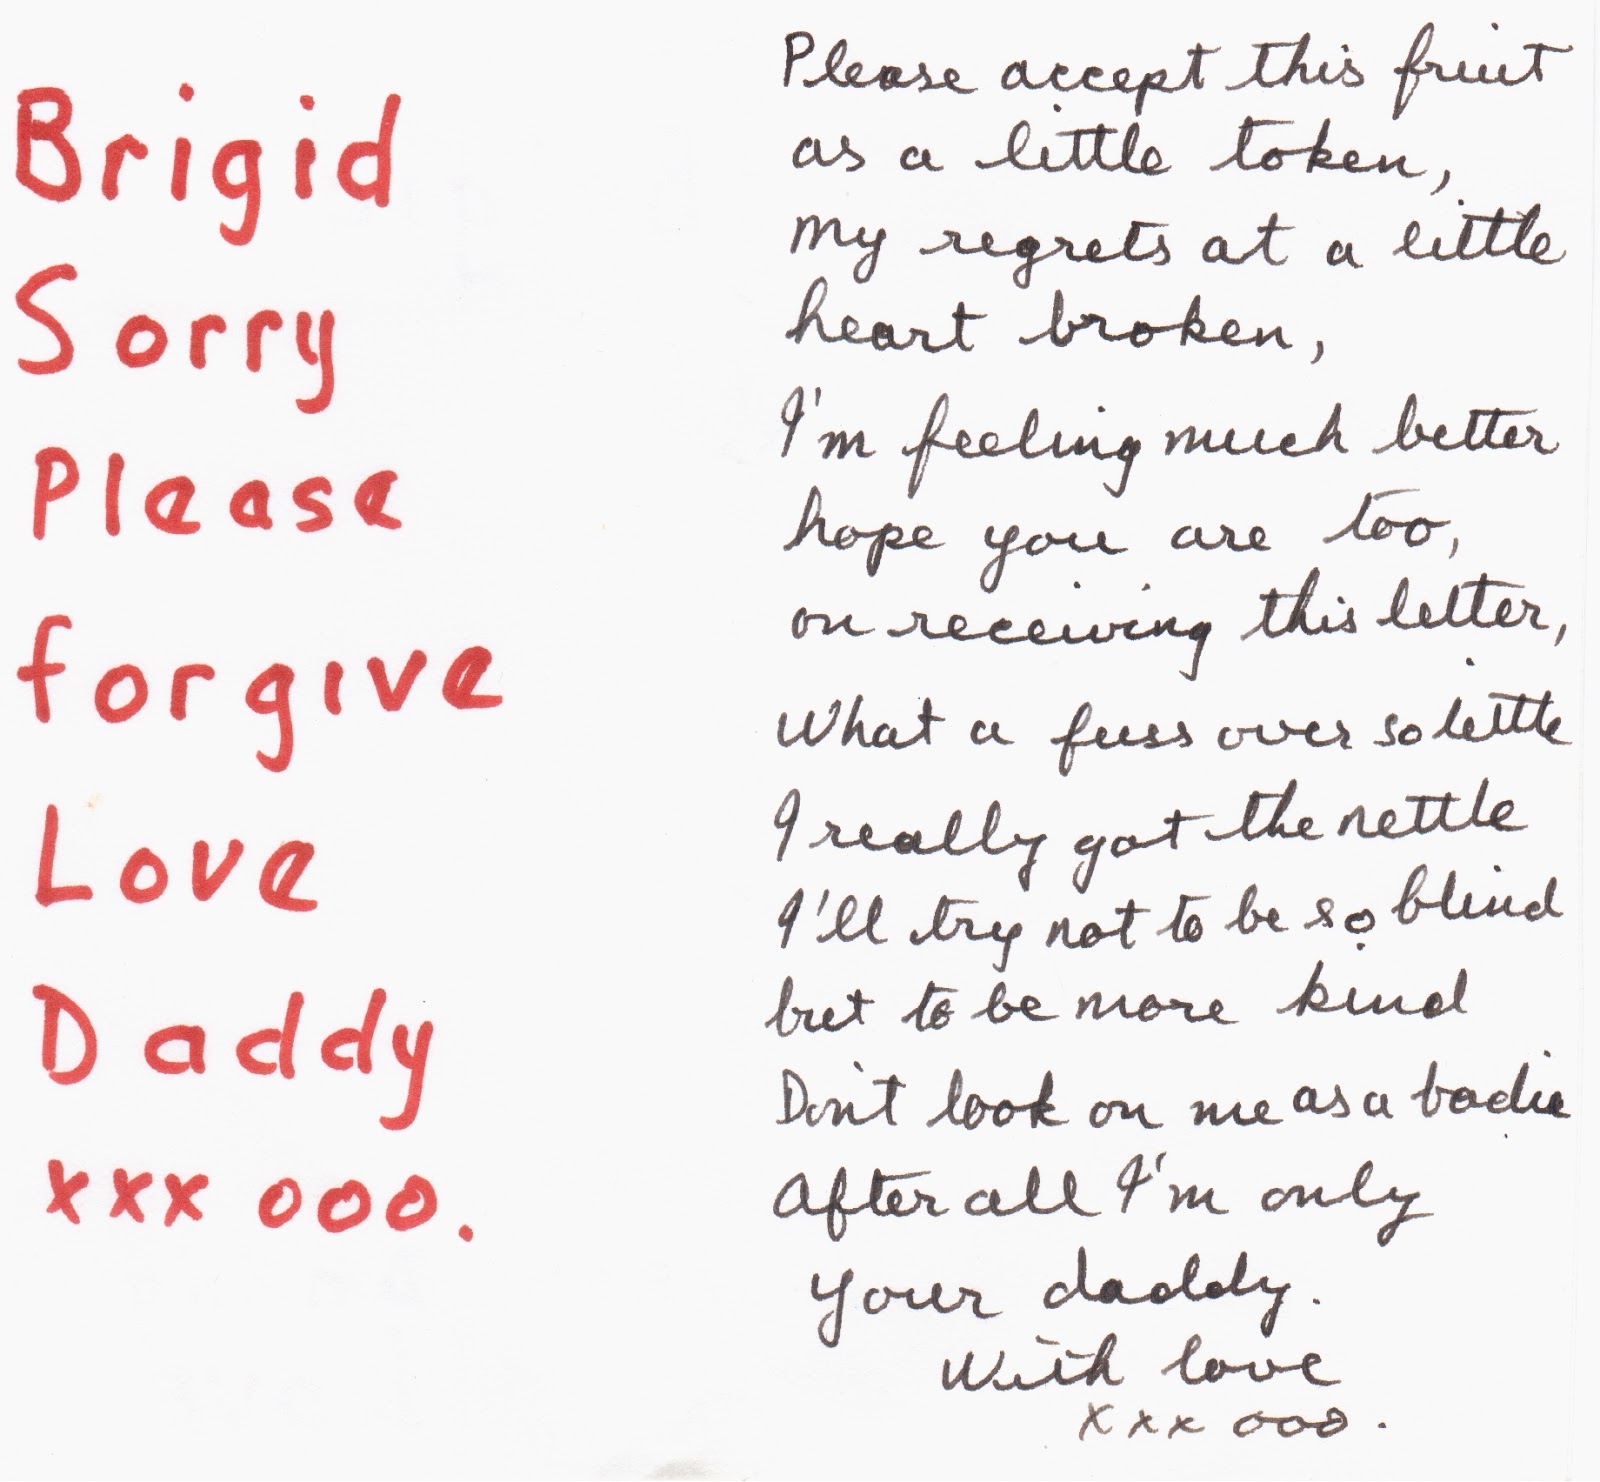 Brigid
Sorry
Please
forgive
Love
Daddy
xxx ooo.
Please accept this fruit
as a little token,
My regrets at a little
heart broken,
I'm feeling much better
hope you are too,
on receiving this letter,
What a fuss over so little
I really got the nettle
I'll try not to be so blind
but to be more kind
Don't look on me as a badie
After all I'm only
your daddy.
With love
xxx ooo.